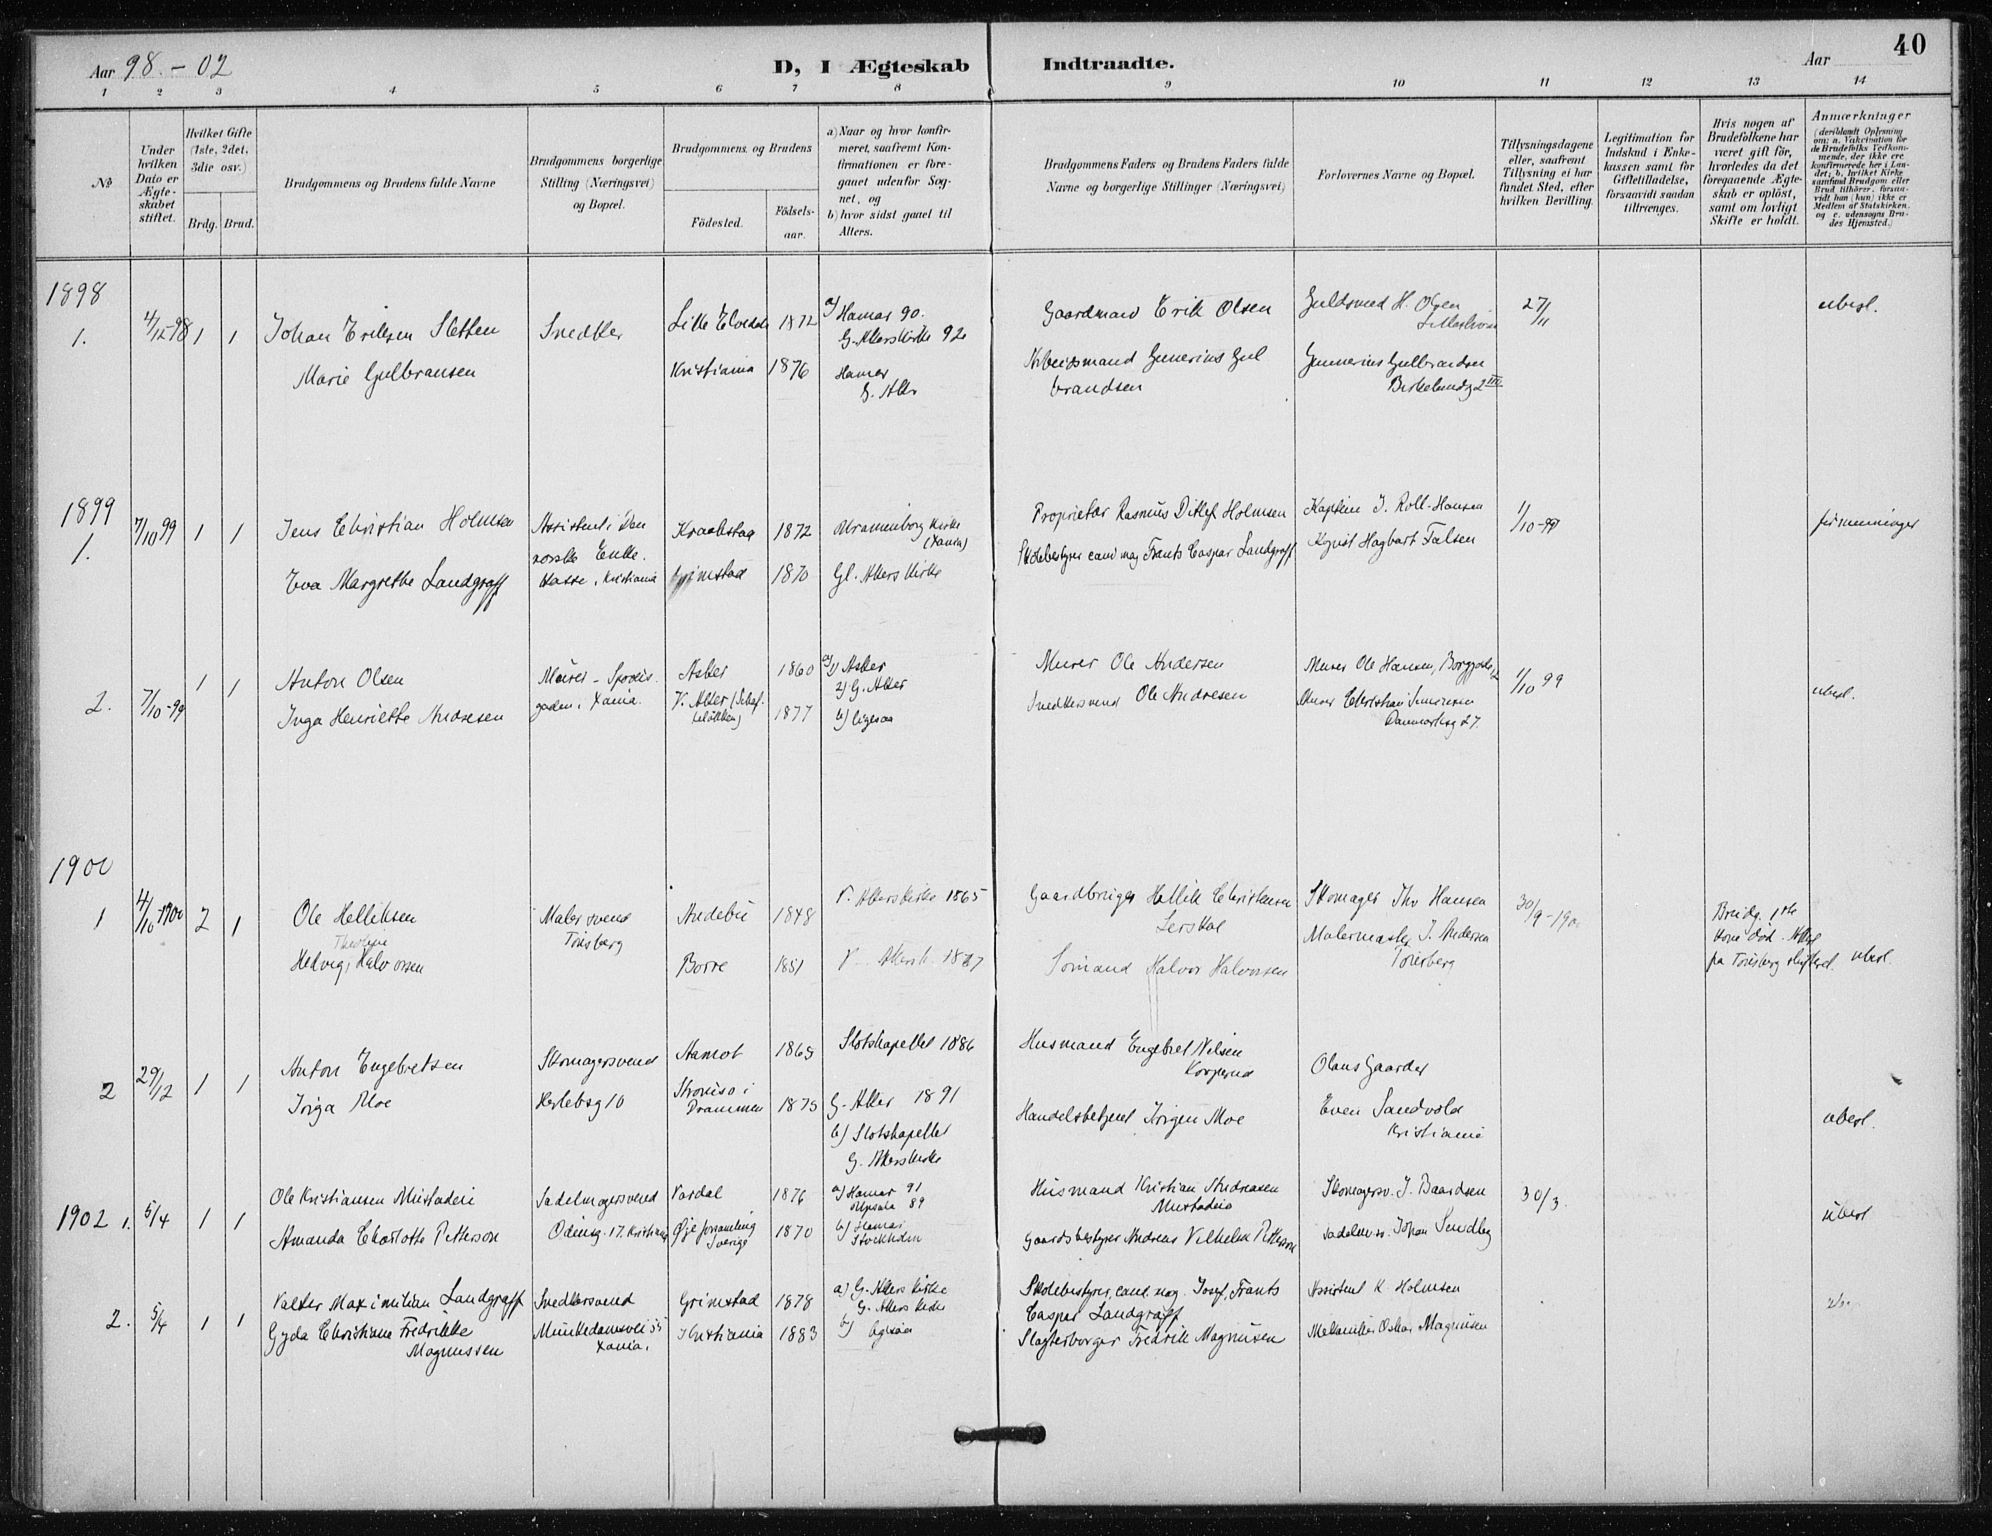 Aar 98.-02
D, I Ægteskab
Indtraadte.
Aar
40
1 2 3 4 5 6 7 8 9 10 11 12 13 14
No
Under hvilken Dato er Ægteskabet stiftet.
Hvilket Gifte (1ste, 2det, 3die osv.)
Brdg. Brud.
Brudgommens og Brudens fulde Navne
Brudgommens borgerlige Stilling (Næringsvei) og Bopæl.
Brudgommens og Brudens
Födested.
Födsels-aar.
a) Naar og hvor konfirmeret, saafremt Konfirmationen er foregaaet udenfor Sognet, og
b) hvor sidst gaaet til Alters.
Brudgommens Faders og Brudens Faders fulde Navne og borgerlige Stillinger (Næringsvei)
Forlovernes Navne og Bopæl.
Tillysningsdagene eller, saafremt Tillysning ei har fundet Sted, efter hvilken Bevilling.
Legitimation for Indskud i Enkekassen samt for Giftetilladelse, forsaavidt saadan tiltrænges.
Hvis nogen af Brudefolkene har været gift før, hvorledes da det foregaaende Ægteskab er oplöst, samt om lovligt Skifte er holdt.
Anmærkninger
(deriblandt Oplysning om: a. Vakcination for de Brudefolks Vedkommende, der ikke ere konfirmerede her i Landet; b. hvilket Kirkesamfund Brudgom eller Brud tilhörer, forsaavidt han (hun) ikke er Medlem af Statskirken, og c. udensogns Brudes Hjemsted.)
1898
1. 4/12-98 1 1
Johan Eriksen Sletten
Snedker
Lille Elvedal 1872
a) Hamar 90.
G. Akers Kirke 92
Gaardmand Erik Olsen
Guldsmed H. Olsen
27/11
ubesl.
Marie Gulbransen
Kristiania 1876
Hamar
G. Aker
Arbeidsmand Gunerius Gulbrandsen
Gunnerius Gulbrandsen
Birkelundg 2 III
1899
1. 7/10 99 1 1
Jens Christian Holmsen
Assistent i Den norske Enkekasse, Kristiania
Kraakstad 1872
Uranienborg Kirke
(Xania)
Proprietær Rasmus Ditlef Holmsen
Kaptein J. Roll-Hansen
1/10-99
Eva Margrethe Landgraff
Grimstad 1870
Gl. Akers Kirke
Skolebestyrer cand mag Frants Caspar Landgraff
Hagbart Falsen
2. 7/10-99 1 1
Anton Olsen
Murer
Xania.
Asker 1860
a) 1) Asker
2) G. Aker
Murer Ole Andersen
Murer Ole Hansen,
1/10 99
ubesl.
Inga Henriette Andresen
V. Aker 1877
b) ligesaa
Snedkersvend Ole Andresen
Murer Christian Simensen
Danmarksg 27.
1900
1 4/10 1900 2 1
Ole Helliksen
Malersvend
Tönsberg
Andebu 1848
V. Akers kirke 1865
Gaardbruger Hellik Christensen
Skomager Thv Hansen
30/9-1900
Brudg. 1ste
Kone död.
paa Tönsberg skifteret.
ubesl.
Hedvig Halvorsen
Borre 1851
Sömand Halvor Halvorsen
Malermester J. Andersen
Tönsberg
2 29/12 1 1
Anton Engebretsen
Skomagersvend
Herslebsg 10
Aamot 1865
Slotskapellet 1886
Husmand Engebret Nilsen
Olaus Gaarder
Inga Moe
Strömsö i Drammen 1875
G. Aker 1891
b) Slotskapellet
G. Akers kirke
Handelsbetjent Jörgen Moe
Even Sandvold
Kristiania
ubesl.
1902 1. 5/4 1 1
Ole Kristiansen Mustadeie
Sadelmagersvend
Odinsg. 17. Kristiania
Vardal 1876
a) Hamar 91
Upsala 89
b) Hamar
Stockholm
Husmand Kristian Andreasen
Mustadeie
Skomagersv. J. Baardsen
30/3.
ubesl
Amanda Charlotte Petterson
Öje forsamling
Sverige
1870
Gaardsbestyrer Andreas Vilhelm Petterson
Sadelm.sv. Johan Sundby
2. 5/4 1 1
Valter Maximilian Landgraff
Snedkersvend
Munkedamsvei 35
Xania.
Grimstad 1878
a) G. Akers kirke
G. Akers kirke
b) ligesaa
Skolebestyrer, cand. mag. Josef, Frants
Caspar Landgraff
Assistent K. Holmsen
Gyda Christiane Fredrikke
Magnussen
Kristiania 1883
Slagterborger Fredrik Magnusen
Mekaniker Oskar Magnusen